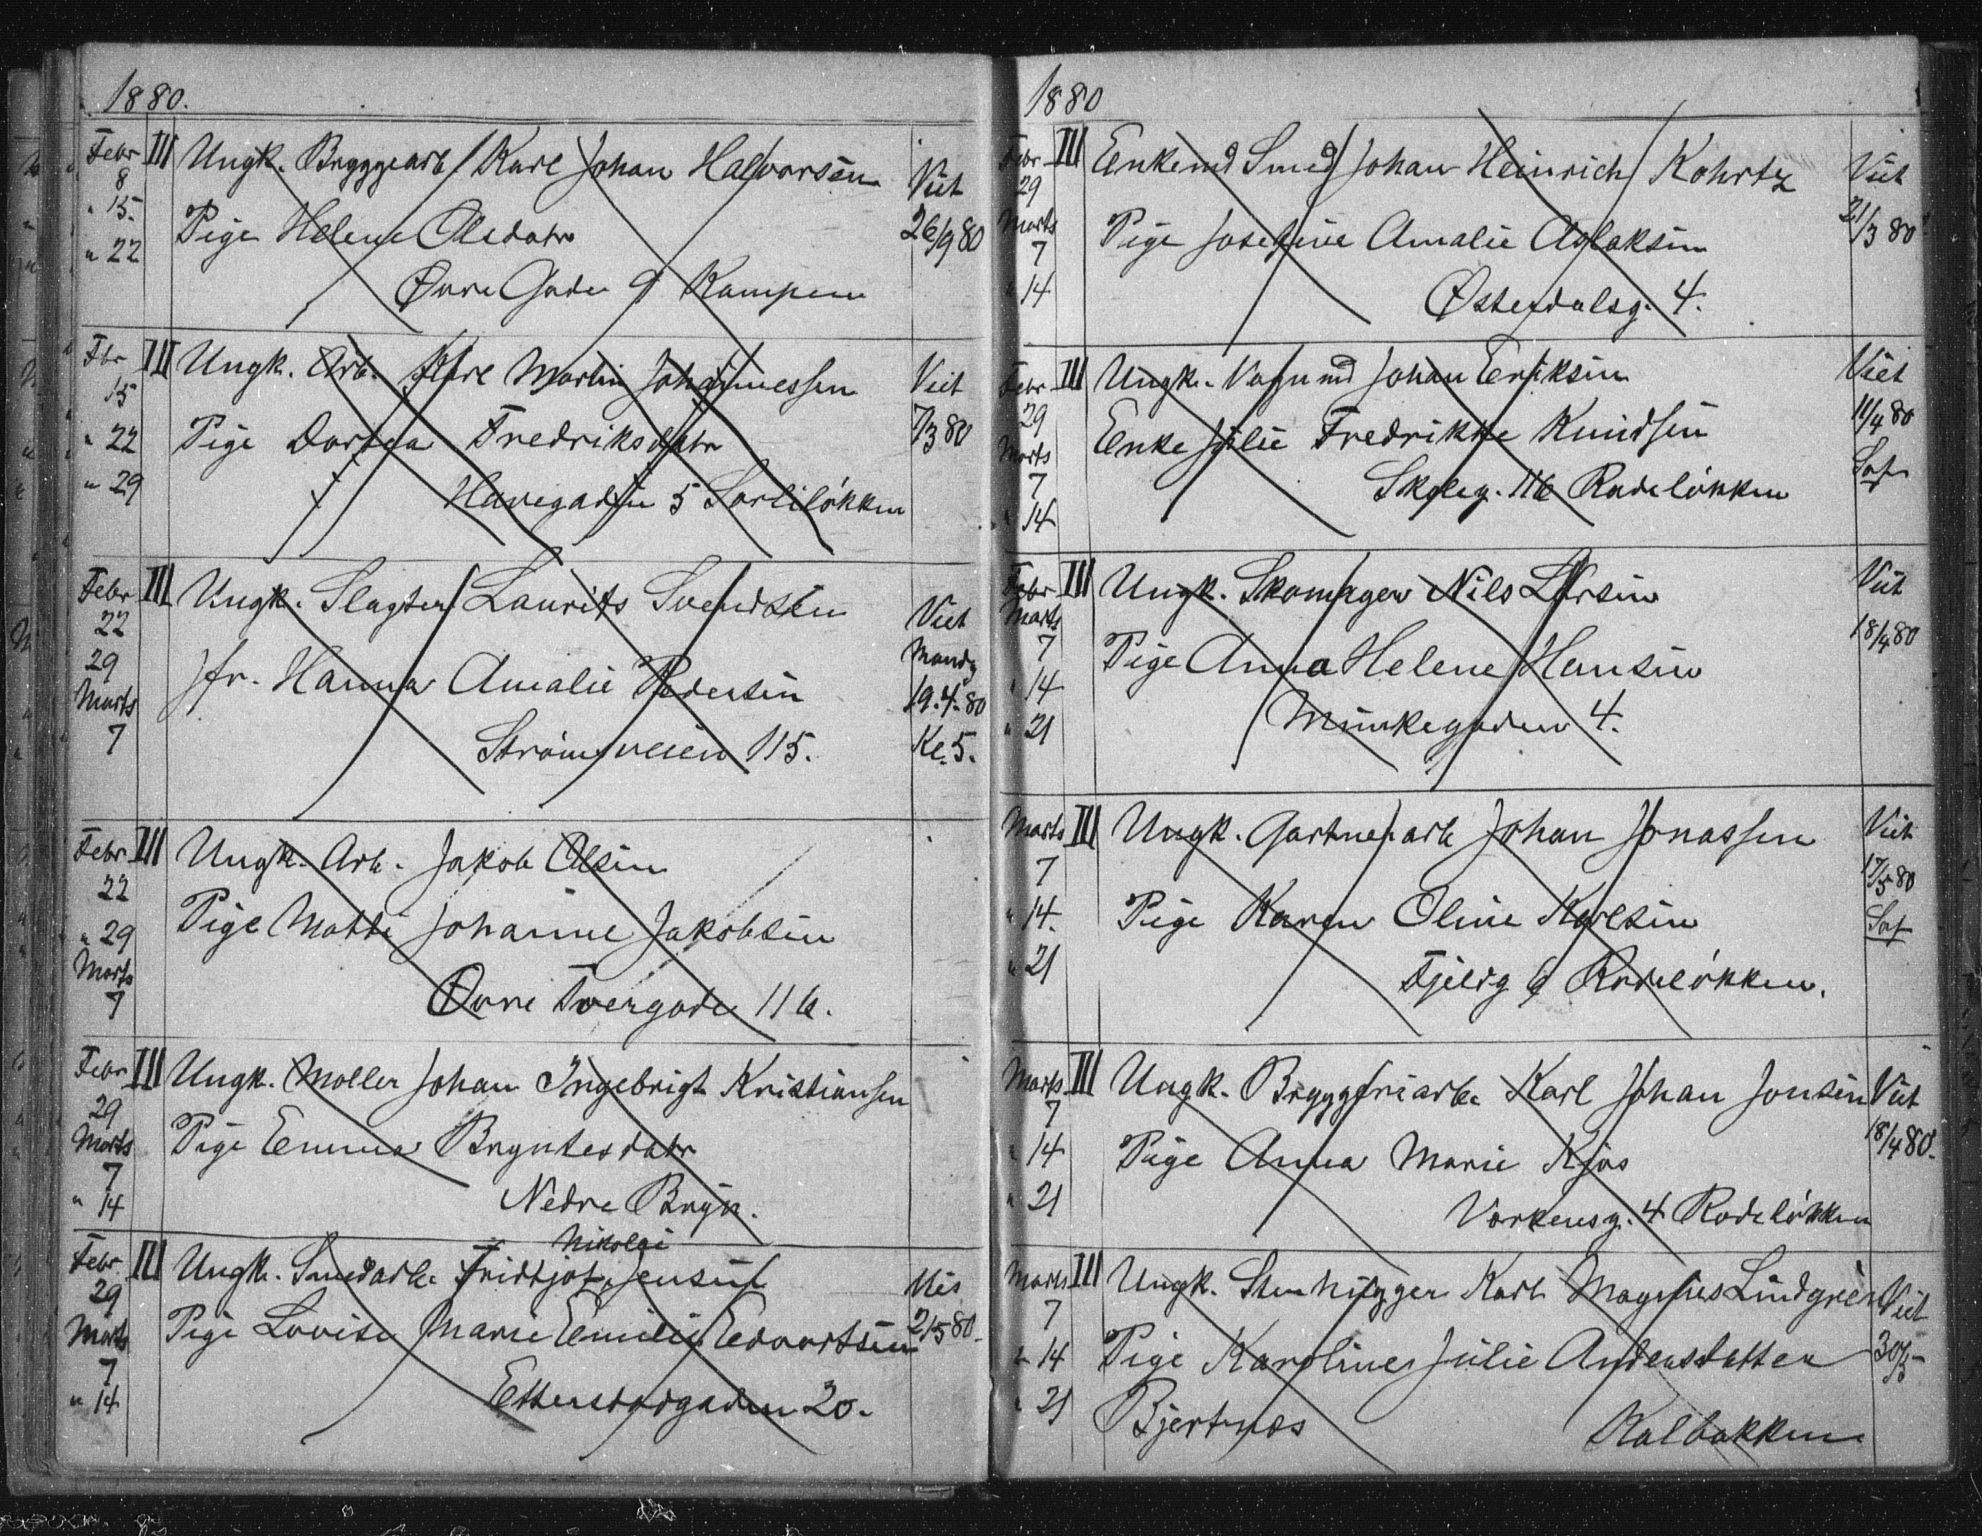 1880.
Febr 8 III Ungk. Bryggearb Karl Johan Halvorsen Viet
" 15. Pige Helene Olsdatr 26/9 80
" 22 Øvre Gade 9 Kampen
Fbr 15 III Ungk. Arb. Karl Martin Johannessen Viet
" 22 Pige Dortea Fredriksdatr 7/3 80
" 29 Havegaden 5 Sorliløkken
Febr 22 III Ungk. Slagter Laurits Svendsen Viet
29 Jfr. Hanna Amalie Pedersen Mandg 19.4.80
Marts 7 Strømsveien 115. Kl. 5.
Febr 22 III Ungk. Arb. Jakob Olsen
" 29 Pige Mathe Johanne Jakobsen
Marts 7 Øvre Tvergade 116.
Febr 29 III Ungk. Møller Johan Ingebrigt Kristiansen
Marts 7 Pige Emma Bryntesdatr
" 14 Nedre Bryn.
Nikolai
Febr 29 III Ungk. Smedarb. Fridtjof Jensen Viet
Marts 7 Pige Lovise Marie Emilie Edvartsen 2/5 80.
" 14 Etterstadgaden 20.
1880
Febr 29 III Enkemd Smed Johan Heinrich Kohrtz Viet
Marts 7 Pige Josefine Amalie Aslaksen 21/3 80
" 14 Østerdalsg. 4.
Febr 29 III Ungk. Vognmd Johan Eriksen Viet
Marts 7 Enke Julie Fredrikke Knudsen 11/4 80
" 14 Skoleg. 116 Rodeløkken
Febr III Ungk. Skomager Nils Larsen Viet
Marts 7 Pige Anna Helene Hansen 18/4 80
" 14 Munkegaden 4.
" 21
Marts 7 III Ungk. Gartnerarb Johan Jonassen Viet
" 14. Pige Karen Oline Karlsen 17/5 80
" 21 Fjeldg 6 Rodeløkken.
Marts 7 III Ungk. Bryggeriarb. Karl Johan Jonsen Viet
" 14 Pige Anna Marie Kjos 18/4 80.
" 21 Verkensg. 4 Rodeløkken
Marts 7 III Ungk. Stenhugger Karl Magnus Lindgren Viet
" 14 Pige Karoline Julie Andersdatter 30/5
" 21 Bjertnæs Kalbakken